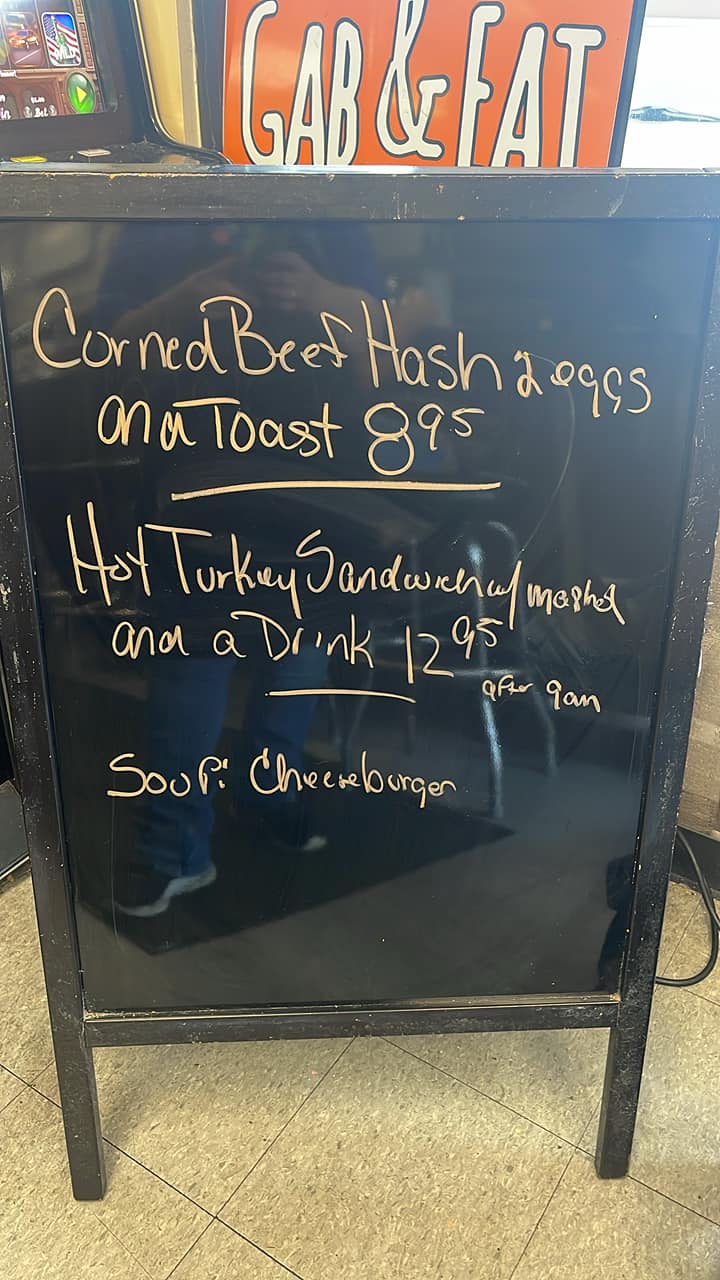 GAB & EAT
Corned Beef Hash 2 eggs
and Toast 8 95
Hot Turkey Sandwich w/ mashed
and a Drink 12 95
after 9am
Soup: Cheeseburger